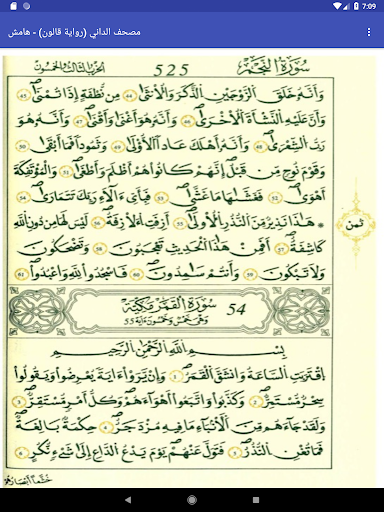 7:09
مصحف الداني (رواية قالون) - هامش
سُورَةُ النَّجْمِ 525 الحزب الثالث والخمسون
وَأَنَّهُ خَلَقَ الزَّوْجَيْنِ الذَّكَرَ وَالْأُنثَىٰ 44 مِن نُّطْفَةٍ إِذَا تُمْنَىٰ 45
وَأَنَّ عَلَيْهِ النَّشْأَةَ الْأُخْرَىٰ 46 وَأَنَّهُ هُوَ أَغْنَىٰ وَأَقْنَىٰ 47 وَأَنَّهُ هُوَ
رَبُّ الشِّعْرَىٰ 48 وَأَنَّهُ أَهْلَكَ عَادًا الْأُولَىٰ 49 وَثَمُودًا فَمَا أَبْقَىٰ 50
وَقَوْمَ نُوحٍ مِّن قَبْلُ إِنَّهُمْ كَانُوا هُمْ أَظْلَمَ وَأَطْغَىٰ 51 وَالْمُؤْتَفِكَةَ
أَهْوَىٰ 52 فَغَشَّاهَا مَا غَشَّىٰ 53 فَبِأَيِّ ءَالَاءِ رَبِّكَ تَتَمَارَىٰ 54
هَٰذَا نَذِيرٌ مِّنَ النُّذُرِ الْأُولَىٰ 55 أَزِفَتِ الْأَزِفَةُ 56 لَيْسَ لَهَا مِن دُونِ اللَّهِ
كَاشِفَةٌ 57 أَفَمِنْ هَٰذَا الْحَدِيثِ تَعْجَبُونَ 58 وَتَضْحَكُونَ
وَلَا تَبْكُونَ 59 وَأَنتُمْ سَامِدُونَ 60 فَاسْجُدُوا لِلَّهِ وَاعْبُدُوا 61
ثمن
سُورَةُ الْقَمَرِ مَكِّيَّة 54
وَهِيَ خَمْسٌ وَخَمْسُونَ ءَايَة 55
بِسْمِ اللَّهِ الرَّحْمَٰنِ الرَّحِيمِ
اقْتَرَبَتِ السَّاعَةُ وَانشَقَّ الْقَمَرُ 1 وَإِن يَرَوْا ءَايَةً يُعْرِضُوا وَيَقُولُوا
سِحْرٌ مُّسْتَمِرٌّ 2 وَكَذَّبُوا وَاتَّبَعُوا أَهْوَاءَهُمْ وَكُلُّ أَمْرٍ مُّسْتَقِرٌّ 3
وَلَقَدْ جَاءَهُم مِّنَ الْأَنبَاءِ مَا فِيهِ مُزْدَجَرٌ 4 حِكْمَةٌ بَالِغَةٌ
فَمَا تُغْنِ النُّذُرُ 5 فَتَوَلَّ عَنْهُمْ يَوْمَ يَدْعُ الدَّاعِ إِلَىٰ شَيْءٍ نُّكُرٍ 6
خُشَّعًا أَبْصَارُهُمْ